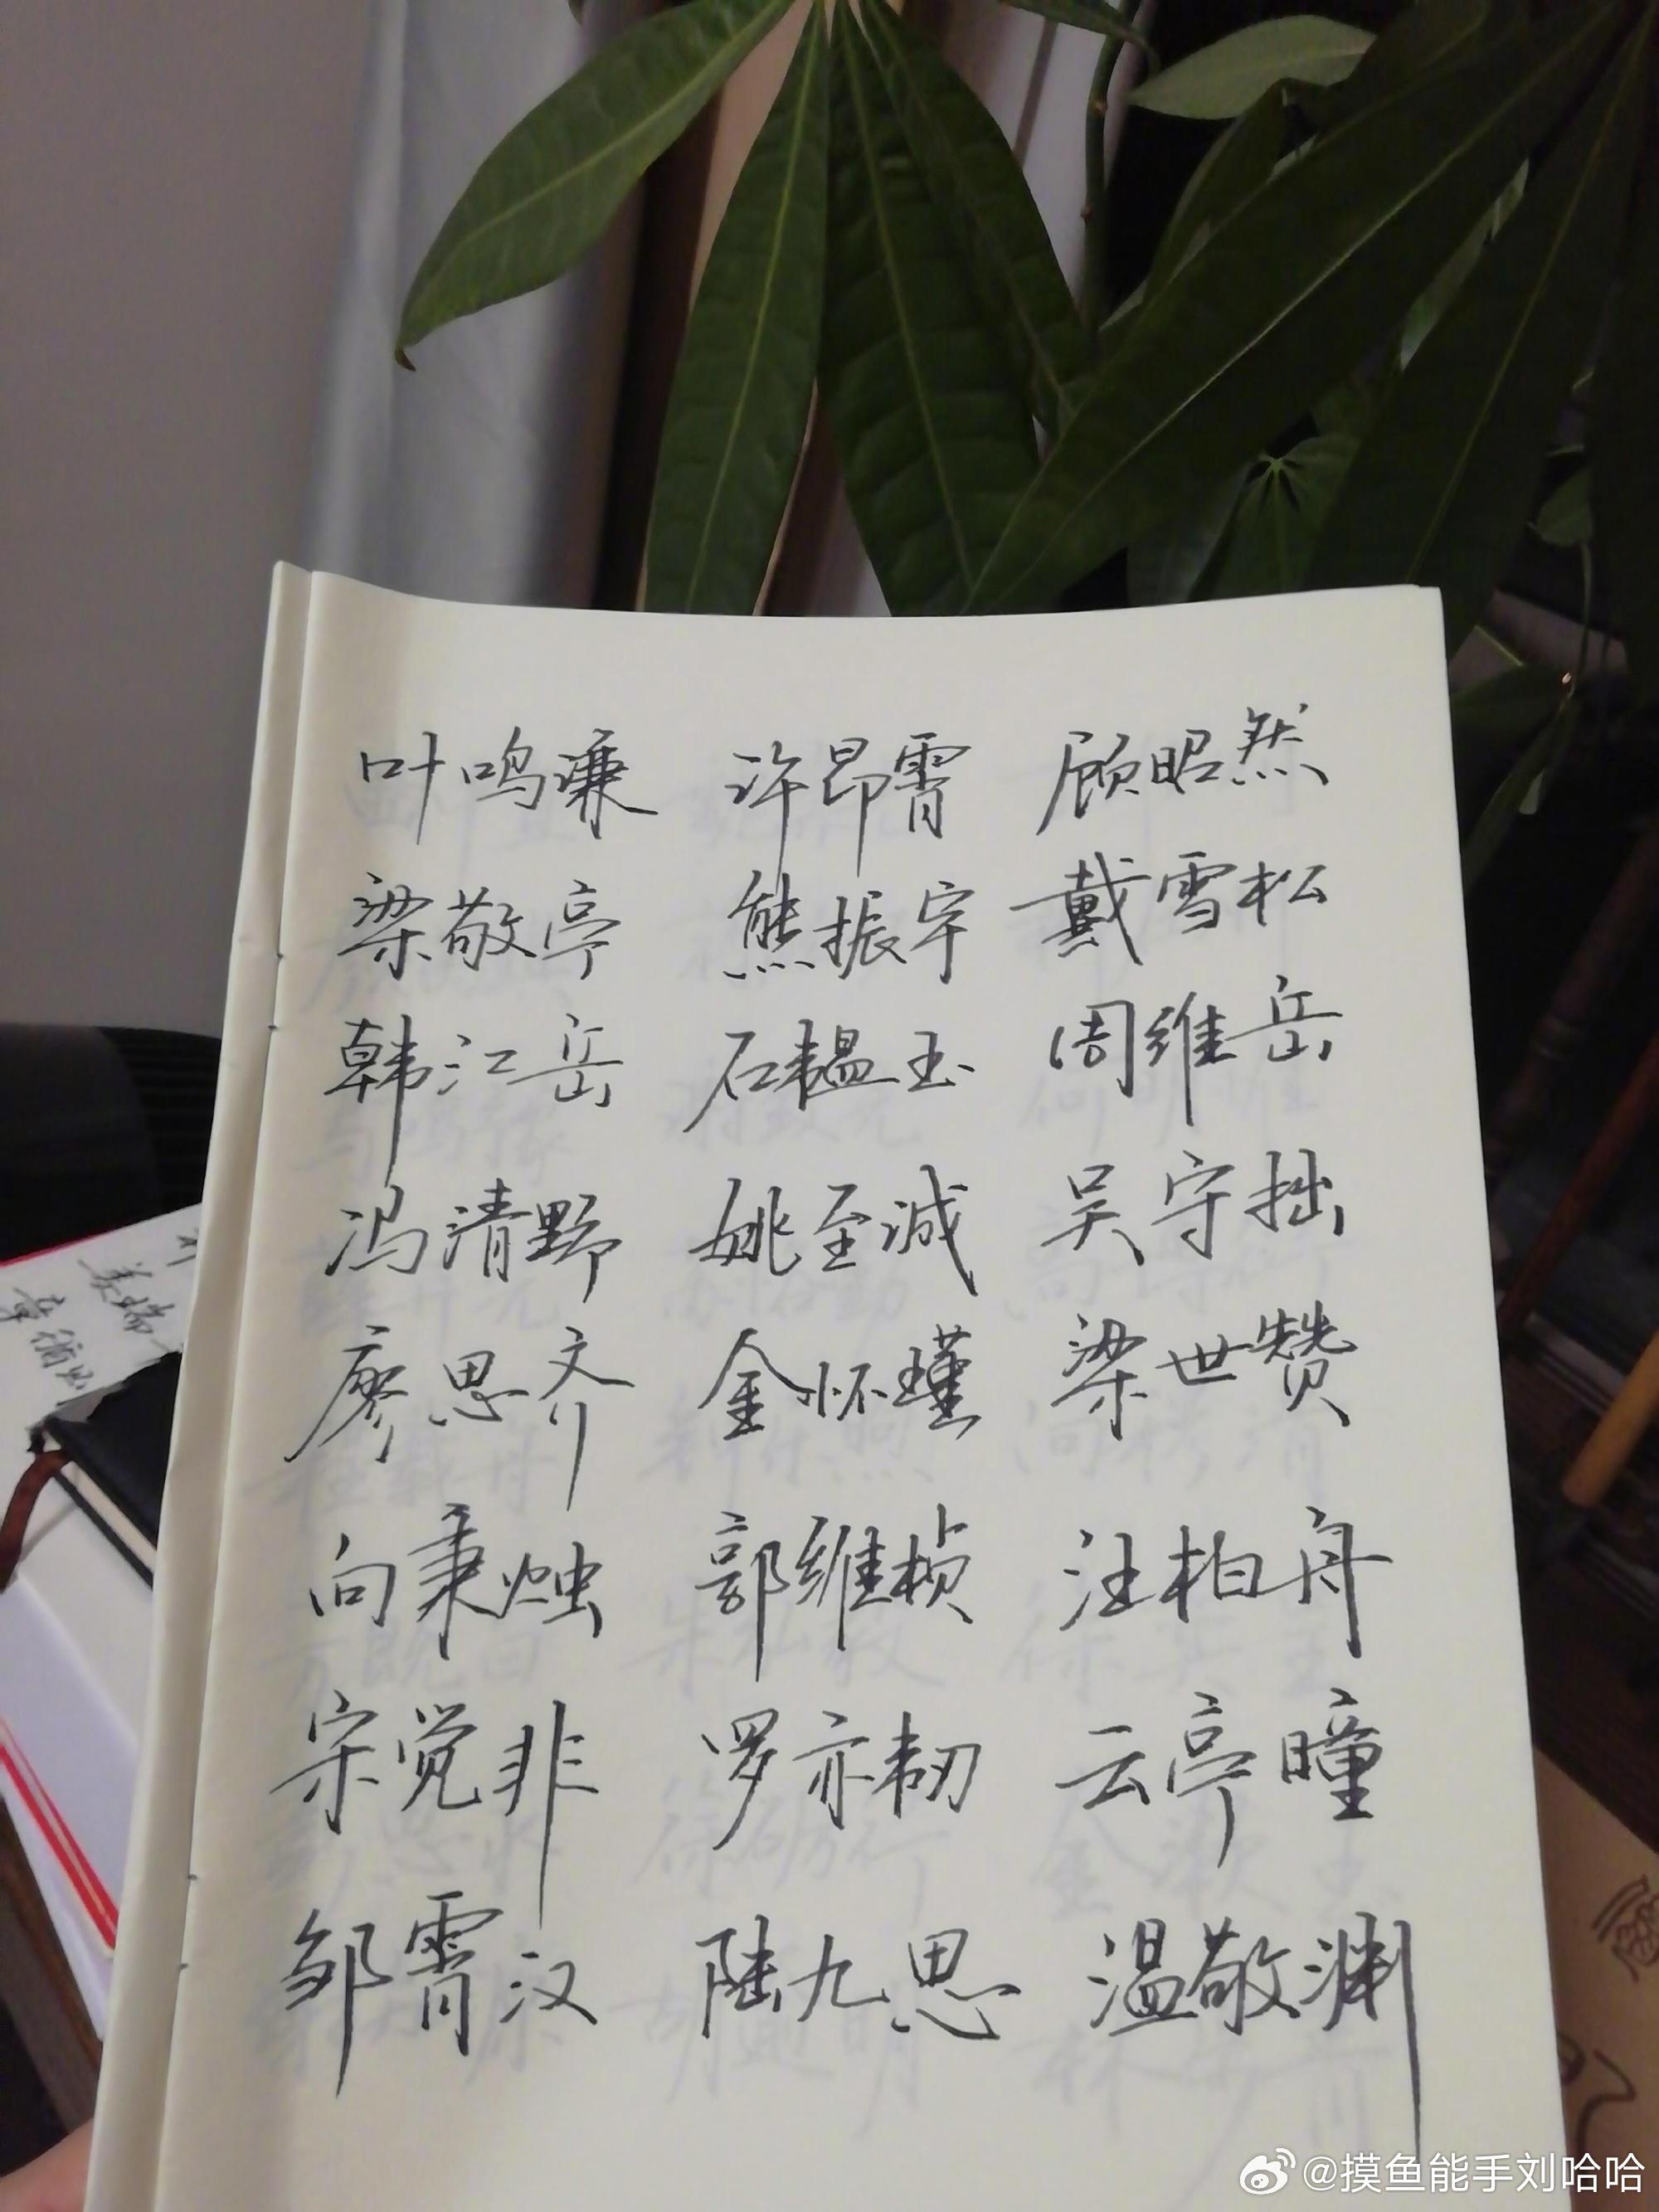 叶鸣谦 许昂霄 顾昭然
梁敬亭 熊振宇 戴雪松
韩江岳 石韫玉 周维岳
冯清野 姚至诚 吴守拙
廖思齐 金怀瑾 梁世赞
向秉烛 郭维桢 汪柏舟
宋觉非 罗亦韧 云亭瞳
邹霄汉 陆九思 温敬渊
@摸鱼能手刘哈哈